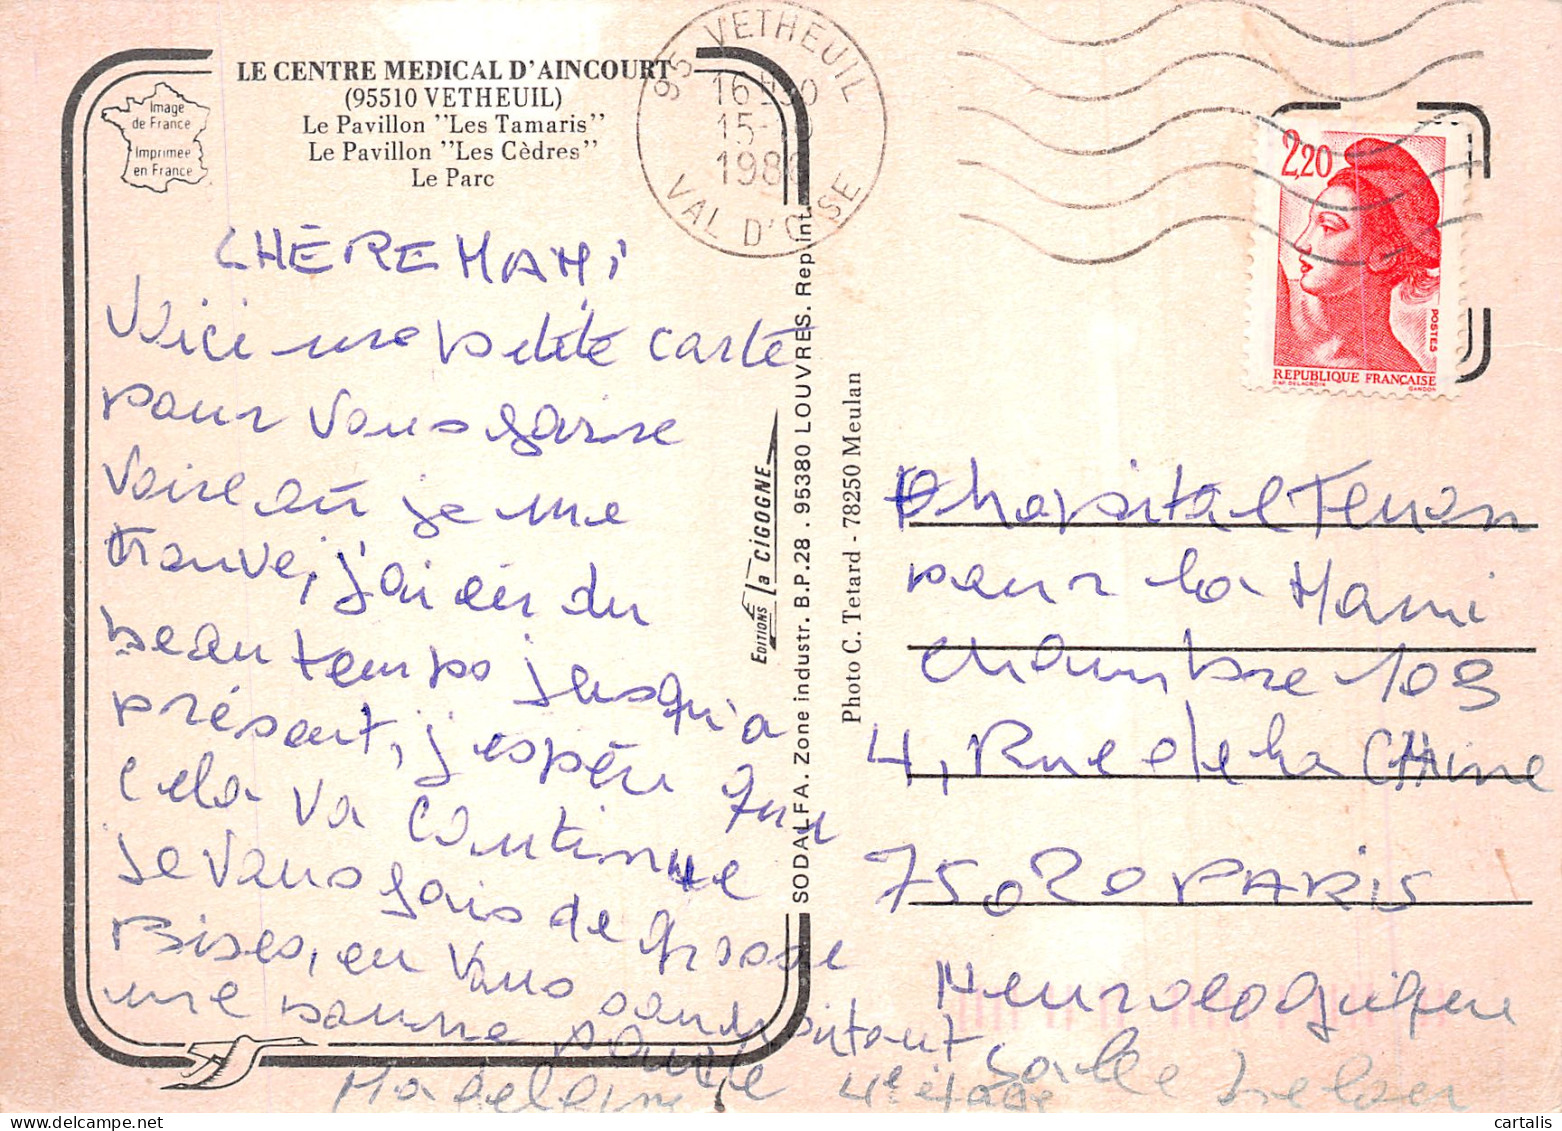 LE CENTRE MEDICAL D'AINCOURT
(95510 VETHEUIL)
Le Pavillon "Les Tamaris"
Le Pavillon "Les Cèdres"
Le Parc
Image
de France
Imprimée
en France
95 VETHEUIL
15-
VAL D'OISE
2,20
POSTES
REPUBLIQUE FRANÇAISE
D'AP. DELACROIX GANDON
CHÈRE MAMI
Voici une petite carte
pour vous faire
voire où je me
trouve, j'ai eu du
beau temps jusqu'a
présent, j'espère que
cela va continue
je vous fais de grosse
Bises, en vous souhaitant
une bonne
4e étage
EDITIONS la CIGOGNE
SODALFA. Zone industr. B.P.28 . 95380 LOUVRES. Rep. int.
Photo C. Tetard - 78250 Meulan
hopital Tenon
pour la Mami
chambre 109
4, Rue de la CHine
75020 PARIS
Neurologique
Salle
cartalis